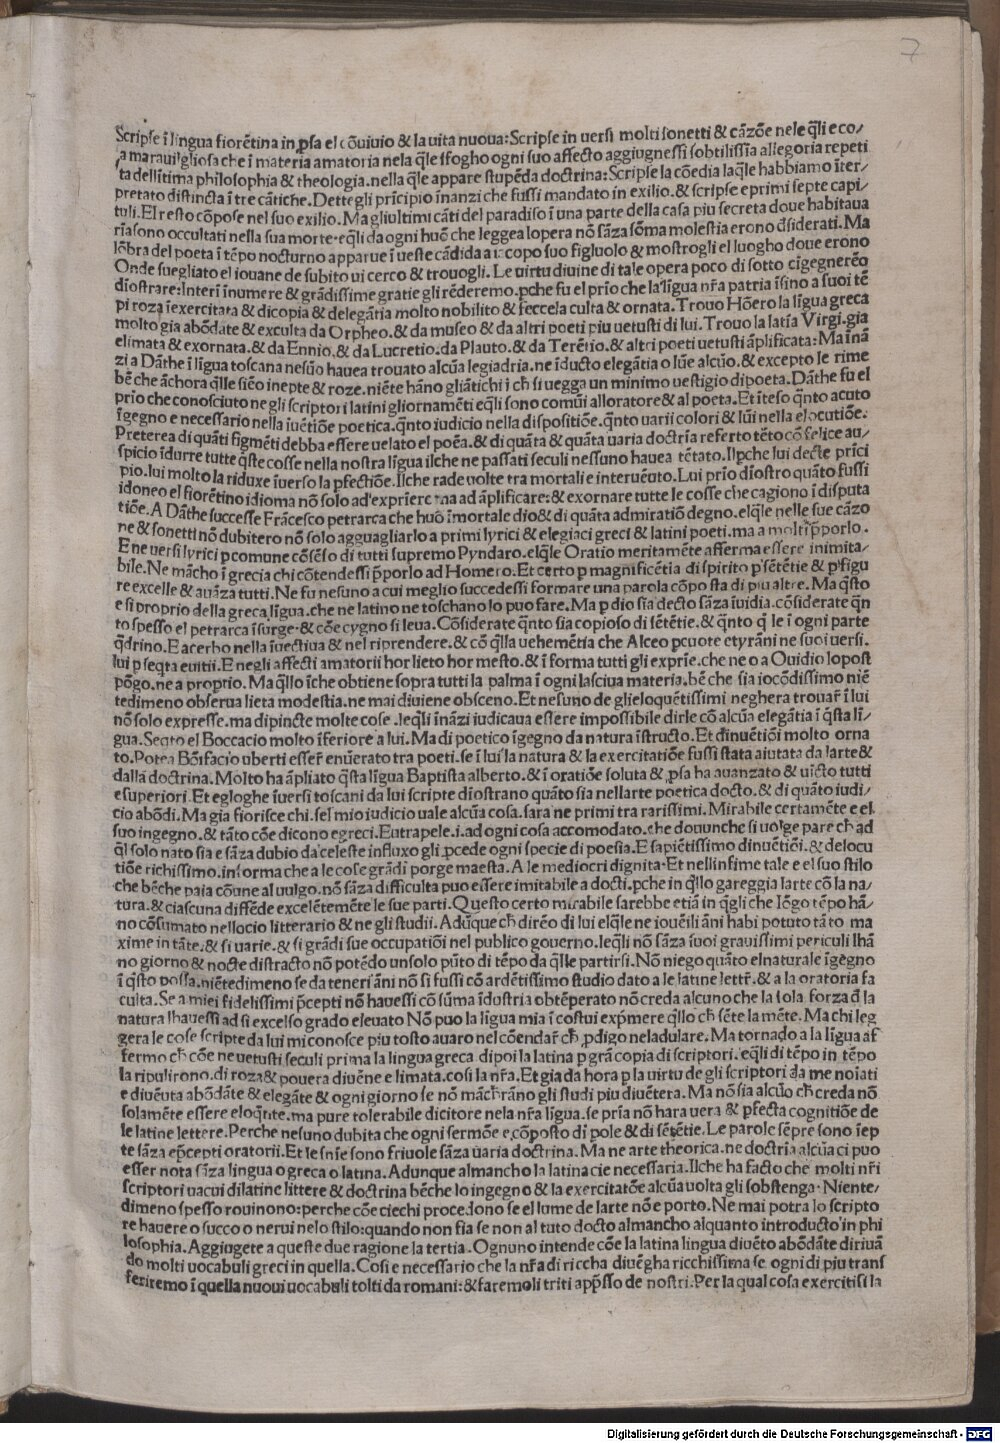 7
Scripſe ĩ lingua fiorẽtina in ꝓſa el cõuiuio & la uita nuoua: Scripſe in uerſi molti ſonetti & cãzõe nele q̃li e co/
ſa marauilglioſa che ĩ materia amatoria nela q̃le iſfogho ogni ſuo affecto aggiugneſſi ſobtiliſſĩa allegoria repeti
ta dellĩtima philoſophia & theologia. nella q̃le appare ſtupẽda doctrina: Scripſe la cõedia laq̃le habbiamo ĩter/
pretato diſtincta ĩ tre cãtiche. Dette gli prĩcipio ĩnanzi che fuſſi mandato in exilio. & ſcripſe e primi ſepte capi/
tuli. El reſto cõpoſe nel ſuo exilio. Ma gliultimi cãti del paradiſo ĩ una parte della caſa piu ſecreta doue habitaua
rĩaſono occultati nella ſua morte. eq̃li da ogni huõ che leggea lopera nõ ſãza ſõma moleſtia erono d̃ſiderati. Ma
lõbra del poeta ĩ tẽpo nocturno apparue ĩ ueſte cãdida a iacopo ſuo figluolo & moſtrogli el luogho doue erono
Onde ſuegliato el iouane de ſubito ui cerco & trouogli. Le uirtu diuine di tale opera poco di ſotto cĩgegnerẽo
dĩoſtrare: Interĩ ĩnumere & grãdiſſime gratie gli rẽderemo. pche fu el prĩo che la lĩgua nr̃a patria ĩſino a ſuoi tẽ
pi roza ĩexercitata & dicopia & delegãtia molto nobilito & feccela culta & ornata. Trouo Hõero la lĩgua greca
molto gia abõdate & exculta da Orpheo. & da muſeo & da altri poeti piu uetuſti di lui. Trouo la latĩa Virgi. gia
elimata & exornata. & da Ennio. & da Lucretio. da Plauto. & da Terẽtio. & altri poeti uetuſti ãplificata: Ma ĩnã
zi a Dãthe ĩ lĩgua toſcana neſuõ hauea trouato alcũa legiadria. ne ĩducto elegãtia o lũe alcũo. & excepto le rime
bẽ che ãchora q̃lle ſiẽo inepte & roze. niẽte hãno gliãtichi ĩ ch̃ ſi uegga un minimo ueſtigio di poeta. Dãthe fu el
prio che conoſciuto ne gli ſcriptori latini gliornamẽti eq̃li ſono comũi alloratore & al poeta. Et ĩteſo q̃nto acuto
ĩgegno e neceſſario nella ĩuẽtiõe poetica. q̃nto iudicio nella diſpoſitiõe. q̃nto uarii colori & lũi nella elocutiõe.
Preterea di quãti figmẽti debba eſſere uelato el poẽa. & di quãta & quãta uaria doctrĩa referto tẽto cõ felice au/
ſpicio ĩdurre tutte q̃ſte coſſe nella noſtra lĩgua ilche ne paſſati ſeculi neſſuno hauea tẽtato. Ilpche lui decte prĩci
pio. lui molto la riduxe ĩuerſo la pfectiõe. Ilche rade uolte tra mortale e interuẽuto. Lui prĩo dĩoſtro quãto fuſſi
idoneo el fiorẽtino idioma nõ ſolo ad exprĩere ma ad ãplificare: & exornare tutte le coſſe che cagiono ĩ diſputa
tiõe. A Dãthe ſucceſſe Frãceſco petrarca che huõ ĩmortale dio & di quãta admiratiõ degno. elq̃le nelle ſue cãzo
ne & ſonetti nõ dubitero nõ ſolo agguagliarlo a primi lyrici & elegiaci greci & latini poeti. ma a molti p̃porlo.
E ne uerſi lyrici p comune cõſẽſo di tutti ſupremo Pyndaro. elq̃le Oratio meritamẽte afferma eſſere inimita/
bile. Ne mãcho ĩ grecia chi cõtendeſſi p̃porlo ad Homero. Et certo p magnificẽtia di ſpirito p ſẽtẽtie & p figu
re excelle & auãza tutti. Ne fu neſuno a cui meglio ſuccedeſſi formare una parola cõpoſta di piu altre. Ma q̃ſto
e ſi proprio della greca lĩgua. che ne latino ne toſchano lo puo fare. Ma p dio ſia decto ſãza ĩuidia. cõſiderate q̃n
to ſpeſſo el petrarca ĩſurge. & cõe cygno ſi leua. Cõſiderate q̃nto ſia copioſo di ſẽtẽtie. & q̃nto q̃le ĩ ogni parte
q̃drino. E acerbo nella ĩuectiua & nel riprendere. & cõ q̃lla uehemẽtia che Alceo pcuote e tyrãni ne ſuoi uerſi.
lui pſeqta euitii. E negli affecti amatorii hor lieto hor meſto. & ĩ forma tutti gli exprĩe. che ne o a Ouidio lopoſt
põgo. ne a proprio. Ma q̃llo ĩche obtiene ſopra tutti la palma ĩ ogni laſciua materia. bẽ che ſia iocõdiſſimo niẽ
tedimeno obſerua lieta modeſtia. ne mai diuiene obſceno. Et neſuno de glieloquẽtiſſimi neghera trouar̃ ĩ lui
nõ ſolo expreſſe. ma dipincte molte coſe. leq̃li ĩnãzi iudicaua eſſere impoſſibile dirle cõ alcũa elegãtia ĩ q̃ſta lĩ/
gua. Seqto el Boccacio molto ĩferiore a lui. Ma di poetico ĩgegno da natura ĩſtructo. Et dĩnuẽtiõi molto orna
to. Potea Bõifacio uberti eſſer̃ enũerato tra poeti. ſe ĩ lui la natura & la exercitatiõe fuſſi ſtata aiutata da larte &
dalla doctrina. Molto ha ãpliato q̃ſta lĩgua Baptiſta alberto. & ĩ oratiõe ſoluta & ꝓſa ha auanzato & uĩcto tutti
e ſuperiori. Et egloghe ĩuerſi toſcani da lui ſcripte dĩoſtrano quãto ſia nellarte poetica docto. & di quãto iudi/
cio abõdi. Ma gia fioriſce chi. ſel mio iudicio uale alcũa coſa. ſara ne primi tra rariſſimi. Mirabile certamẽte e el
ſuo ingegno. & tãto cõe dicono egreci. Eutrapele. i. ad ogni coſa accomodato. che douunche ſi uolge pare ch̃ ad
q̃l ſolo nato ſia e ſãza dubio da celeſte influxo gli ꝓcede ogni ſpecie di poeſia. E ſapiẽtiſſimo dinuẽtiõi. & delocu
tiõe richiſſimo. in forma che a le coſe grãdi porge maeſta. A le mediocri dignita. Et nellinfime tale e el ſuo ſtilo
che bẽche paia cõune al uulgo. nõ ſãza difficulta puo eſſere imitabile a docti. pche in q̃llo gareggia larte cõ la na/
tura. & ciaſcuna diffẽde excelẽtemẽte le ſue parti. Queſto certo mirabile ſarebbe etiã in q̃gli che lõgo tẽpo hã/
no cõſumato nellocio litterario & ne gli ſtudii. Adũque ch̃ dirẽo di lui elq̃le ne iouẽili ãni habi potuto tãto ma
xime in tãte. & ſi uarie. & ſi grãdi ſue occupatiõi nel publico gouerno. leq̃li nõ ſãza ſuoi grauiſſimi periculi lhã
no giorno & nocte diſtracto nõ potẽdo unſolo pũto di tẽpo da q̃lle partirſi. Nõ niego quãto elnaturale ĩgẽgno
ĩ q̃ſto poſſa. niẽtedimeno ſe da teneri ãni nõ ſi fuſſi cõ ardẽtiſſimo ſtudio dato a le latine lettr̃. & a la oratoria fa
culta. Se a miei fideliſſimi p̃cepti nõ haueſſi cõ ſũma ĩduſtria obtẽperato nõ creda alcuno che la ſola forza d̃ la
natura lhaueſſi ad ſi excelſo grado eleuato Nõ puo la lĩgua mia ĩ coſtui exp̃mere q̃llo ch̃ ſẽte la mẽte. Ma chi leg
gera le coſe ſcripte da lui mi conoſce piu toſto auaro nel cõendar̃ ch̃ ꝓdigo neladulare. Ma tornado a la lĩgua af
fermo ch̃ cõe ne uetuſti ſeculi prima la lingua greca dipoi la latina p grã copia di ſcriptori. eq̃li di tẽpo in tẽpo
la ripulirono. di roza & pouera diuẽne e limata. coſi la nr̃a. Et gia da hora p la uirtu de gli ſcriptori da me noĩati
e diuẽuta abõdãte & elegãte & ogni giorno ſe nõ mãch̃rãno gli ſtudi piu diuẽtera. Ma nõ ſia alcũo ch̃ creda nõ
ſolamẽte eſſere eloq̃nte. ma pure tolerabile dicitore nela nr̃a lĩgua. ſe prĩa nõ hara uera & pfecta cognitiõe de
le latine lettere. Perche neſuno dubita che ogni ſermõe e cõpoſto di pole & di ſẽtẽtie. Le parole ſẽpre ſono ĩep
te ſãza ep̃cepti oratorii. Et le ſnĩe ſono friuole ſãza uaria doctrina. Ma ne arte theorica. ne doctrĩa alcũa ci puo
eſſer nota ſãza lingua o greca o latina. Adunque almancho la latina cie neceſſaria. Ilche ha facto che molti nr̃i
ſcriptori uacui di latine littere & doctrina bẽche lo ingegno & la exercitatõe alcũa uolta gli ſobſtenga. Niente/
dimeno ſpeſſo rouinono: perche cõe ciechi procedono ſe el lume de larte nõ e porto. Ne mai potra lo ſcripto
re hauere o ſucco o nerui nelo ſtilo: quando non fia ſe non al tuto docto almancho alquanto introducto in phi
loſophia. Aggiugete a queſte due ragione la tertia. Ognuno intende cõe la latina lingua diuẽto abõdãte diriuã
do molti uocabuli greci in quella. Coſi e neceſſario che la nr̃a di riccha diuẽgha ricchiſſima ſe ogni di piu tranſ
feriremo ĩ quella nuoui uocabuli tolti da romani: & faremoli triti app̃ſſo de noſtri. Per la qual coſa exercitiſi la
Digitalisierung gefördert durch die Deutsche Forschungsgemeinschaft - DFG